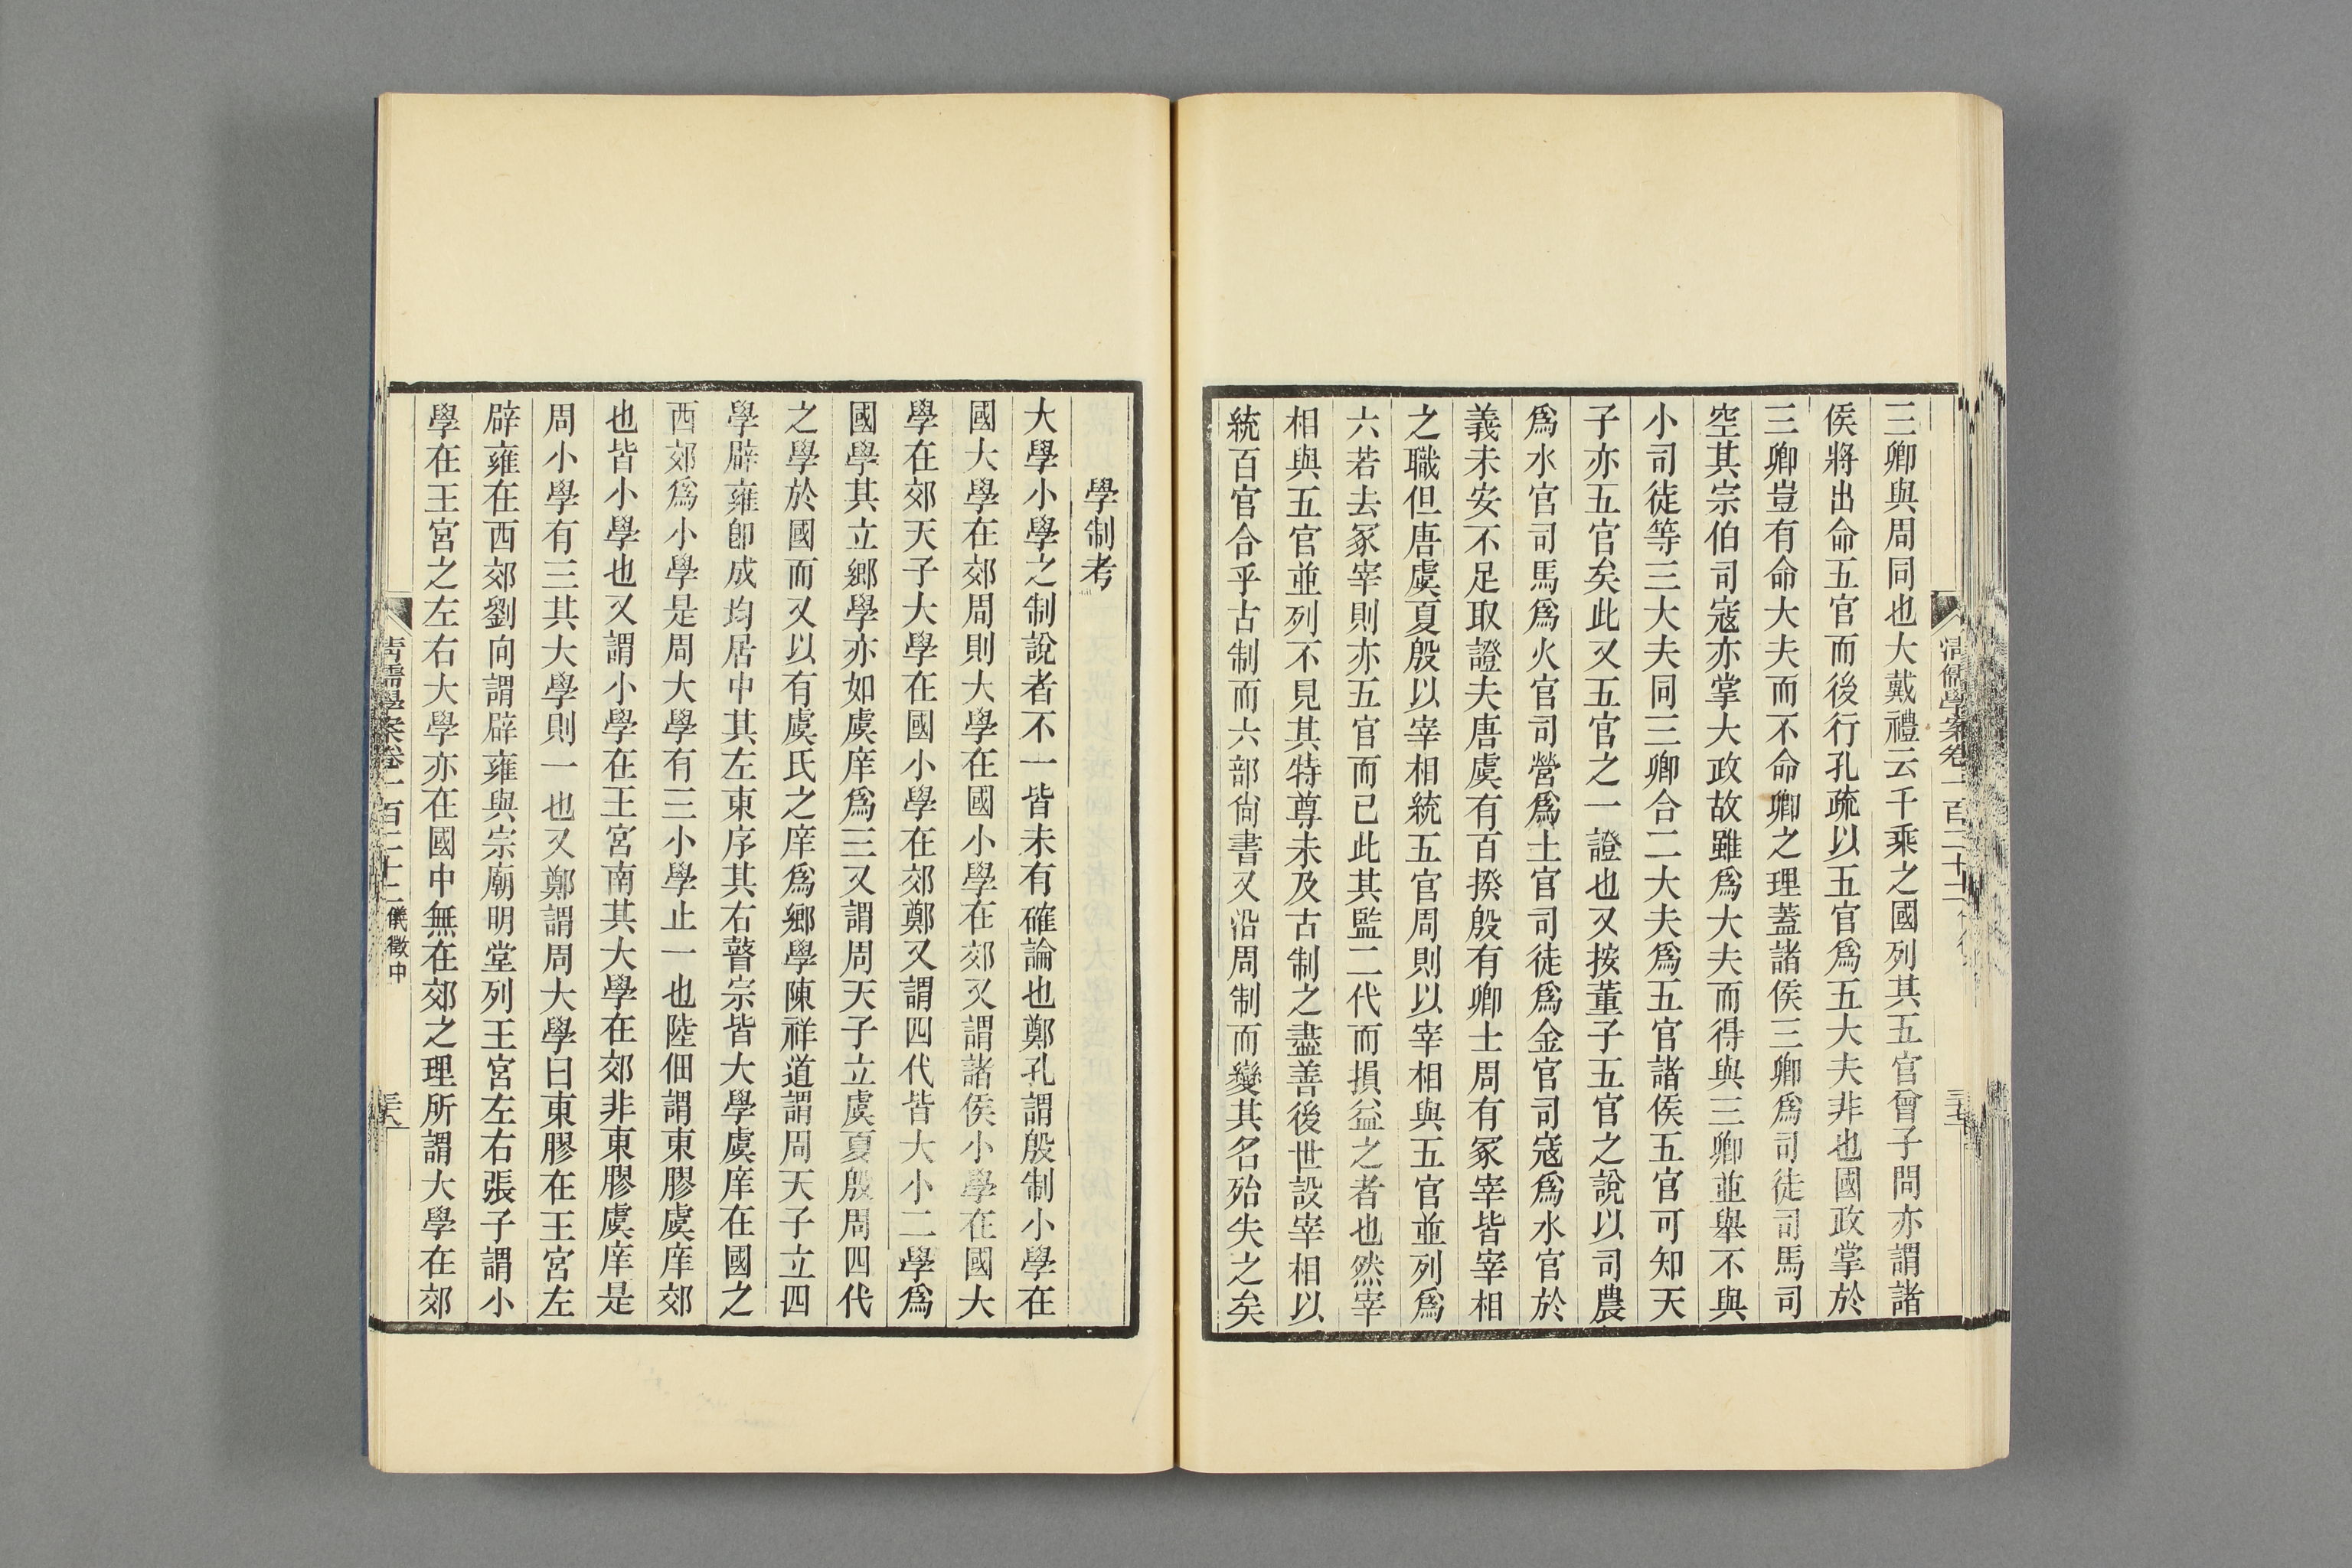 三卿與周同也大戴禮云千乘之國列其五官曾子問亦謂諸
侯將出命五官而後行孔疏以五官爲五大夫非也國政掌於
三卿豈有命大夫而不命卿之理蓋諸侯三卿爲司徒司馬司
空其宗伯司寇亦掌大政故雖爲大夫而得與三卿並舉不與
小司徒等三大夫同三卿合二大夫爲五官諸侯五官可知天
子亦五官矣此又五官之一證也又按董子五官之說以司農
爲水官司馬爲火官司營爲土官司徒爲金官司寇爲水官於
義未安不足取證夫唐虞有百揆殷有卿士周有冢宰皆宰相
之職但唐虞夏殷以宰相統五官周則以宰相與五官並列爲
六若去冢宰則亦五官而已此其監二代而損益之者也然宰
相與五官並列不見其特尊未及古制之盡善後世設宰相以
統百官合乎古制而六部尙書又沿周制而變其名殆失之矣
學制考
大學小學之制說者不一皆未有確論也鄭孔謂殷制小學在
國大學在郊周則大學在國小學在郊又謂諸侯小學在國大
學在郊天子大學在國小學在郊鄭又謂四代皆大小二學爲
國學其立鄉學亦如虞庠爲三又謂周天子立虞夏殷周四代
之學於國而又以有虞氏之庠爲鄉學陳祥道謂周天子立四
學辟雍卽成均居中其左東序其右瞽宗皆大學虞庠在國之
西郊爲小學是周大學有三小學止一也陸佃謂東膠虞庠郊
也皆小學也又謂小學在王宮南其大學在郊非東膠虞庠是
周小學有三其大學則一也又鄭謂周大學曰東膠在王宮左
辟雍在西郊劉向謂辟雍與宗廟明堂列王宮左右張子謂小
學在王宮之左右大學亦在國中無在郊之理所謂大學在郊
清儒學案卷一百二十二 儀徵中